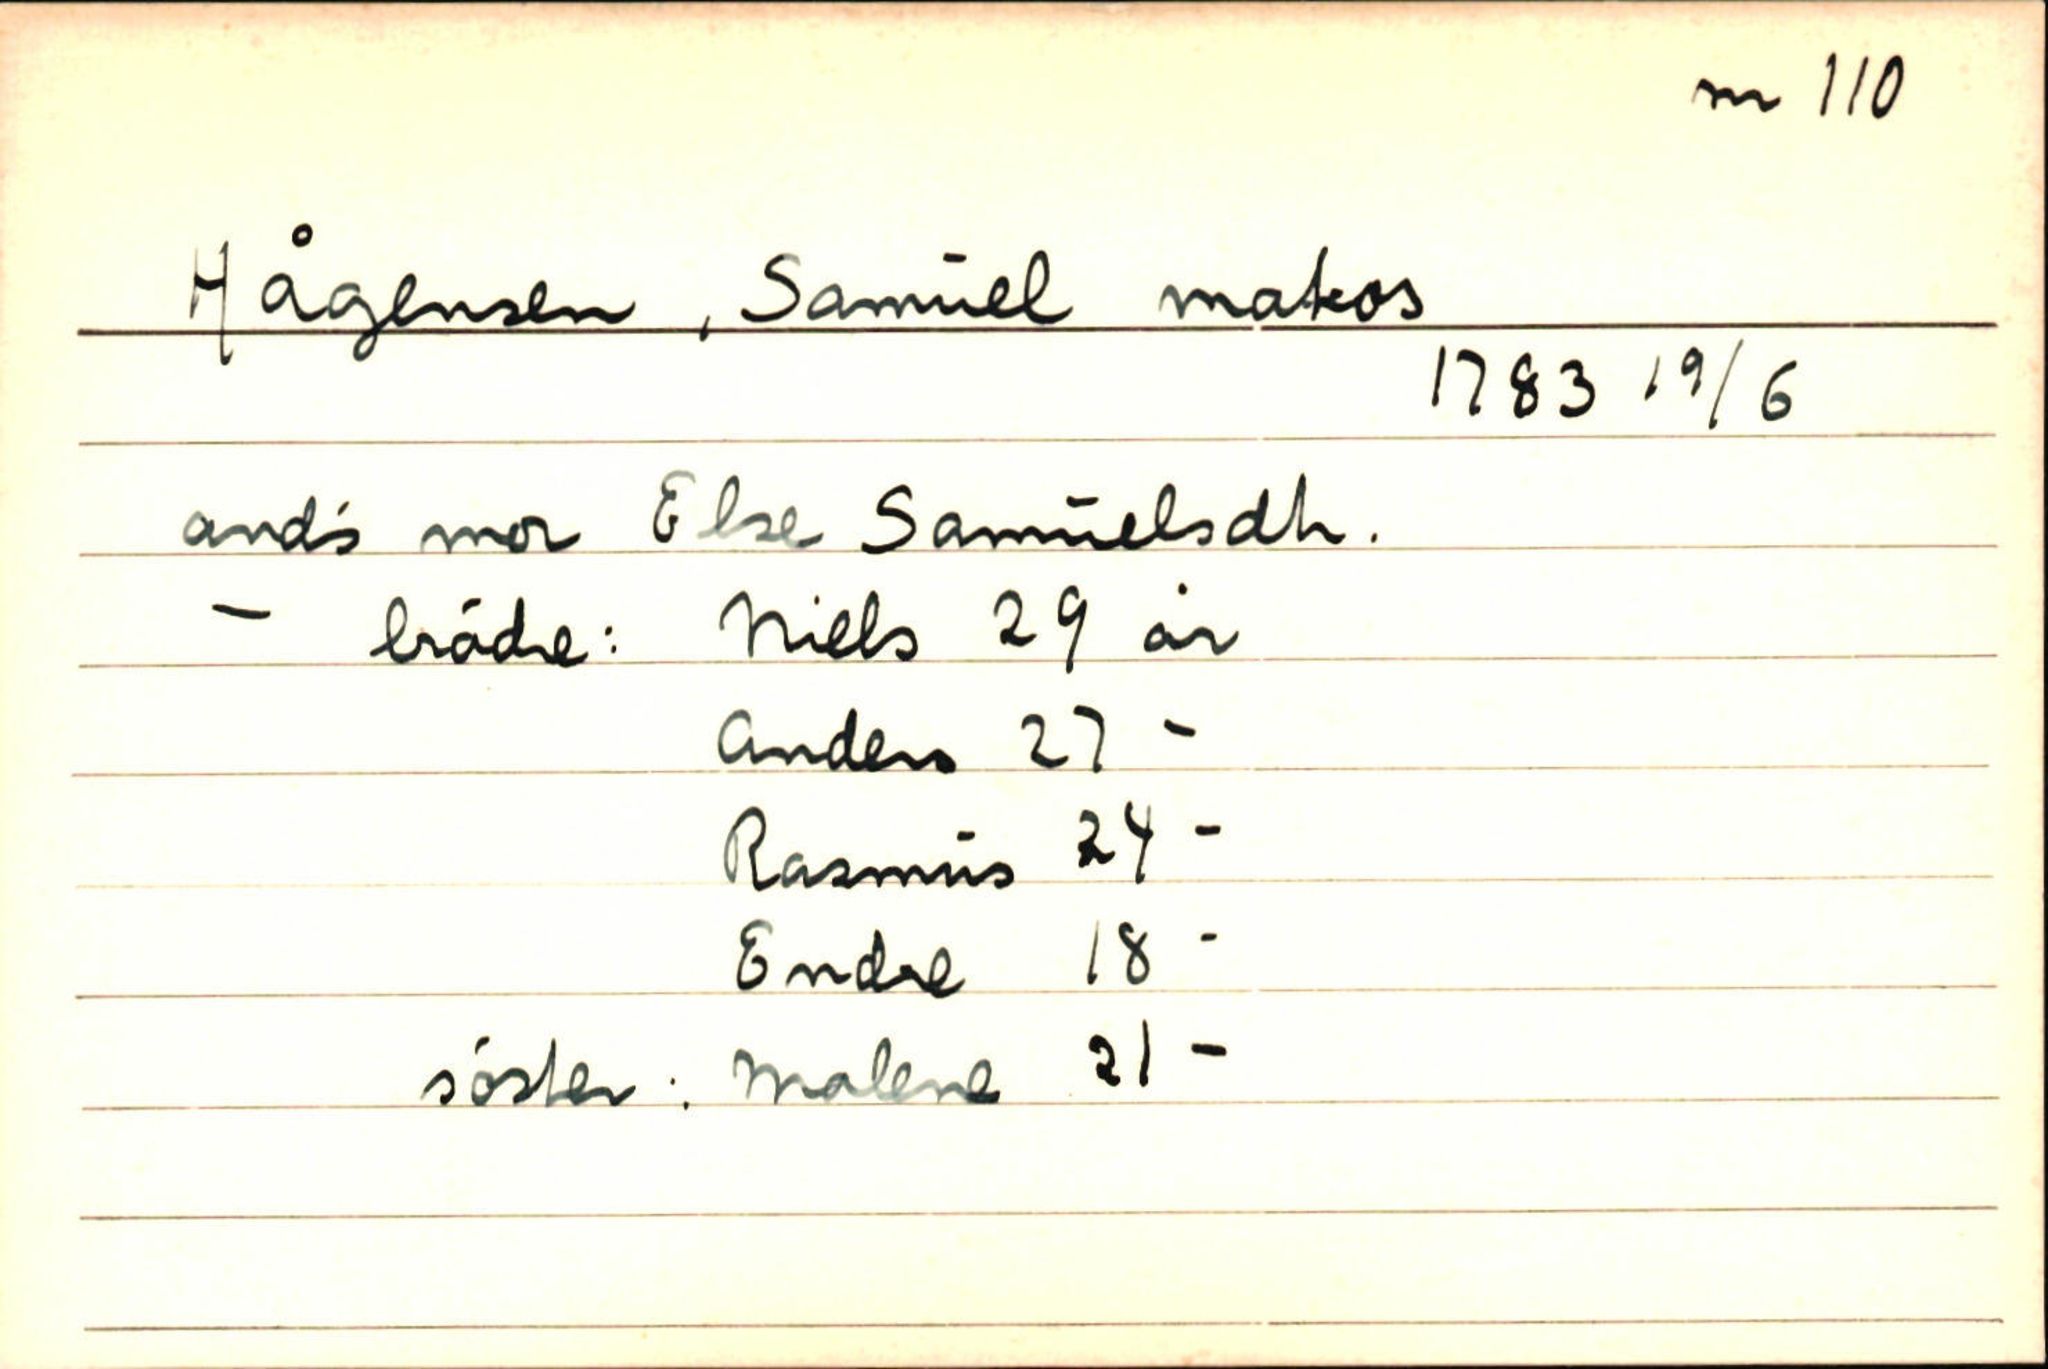 nr 110
Hågensen, Samuel matros
1783 19/6
and's mor Else Samuelsdtr.
- brödre: Niels 29 år
Anders 27 -
Rasmus 24 -
Endre 18 -
söster: Malene 21 -